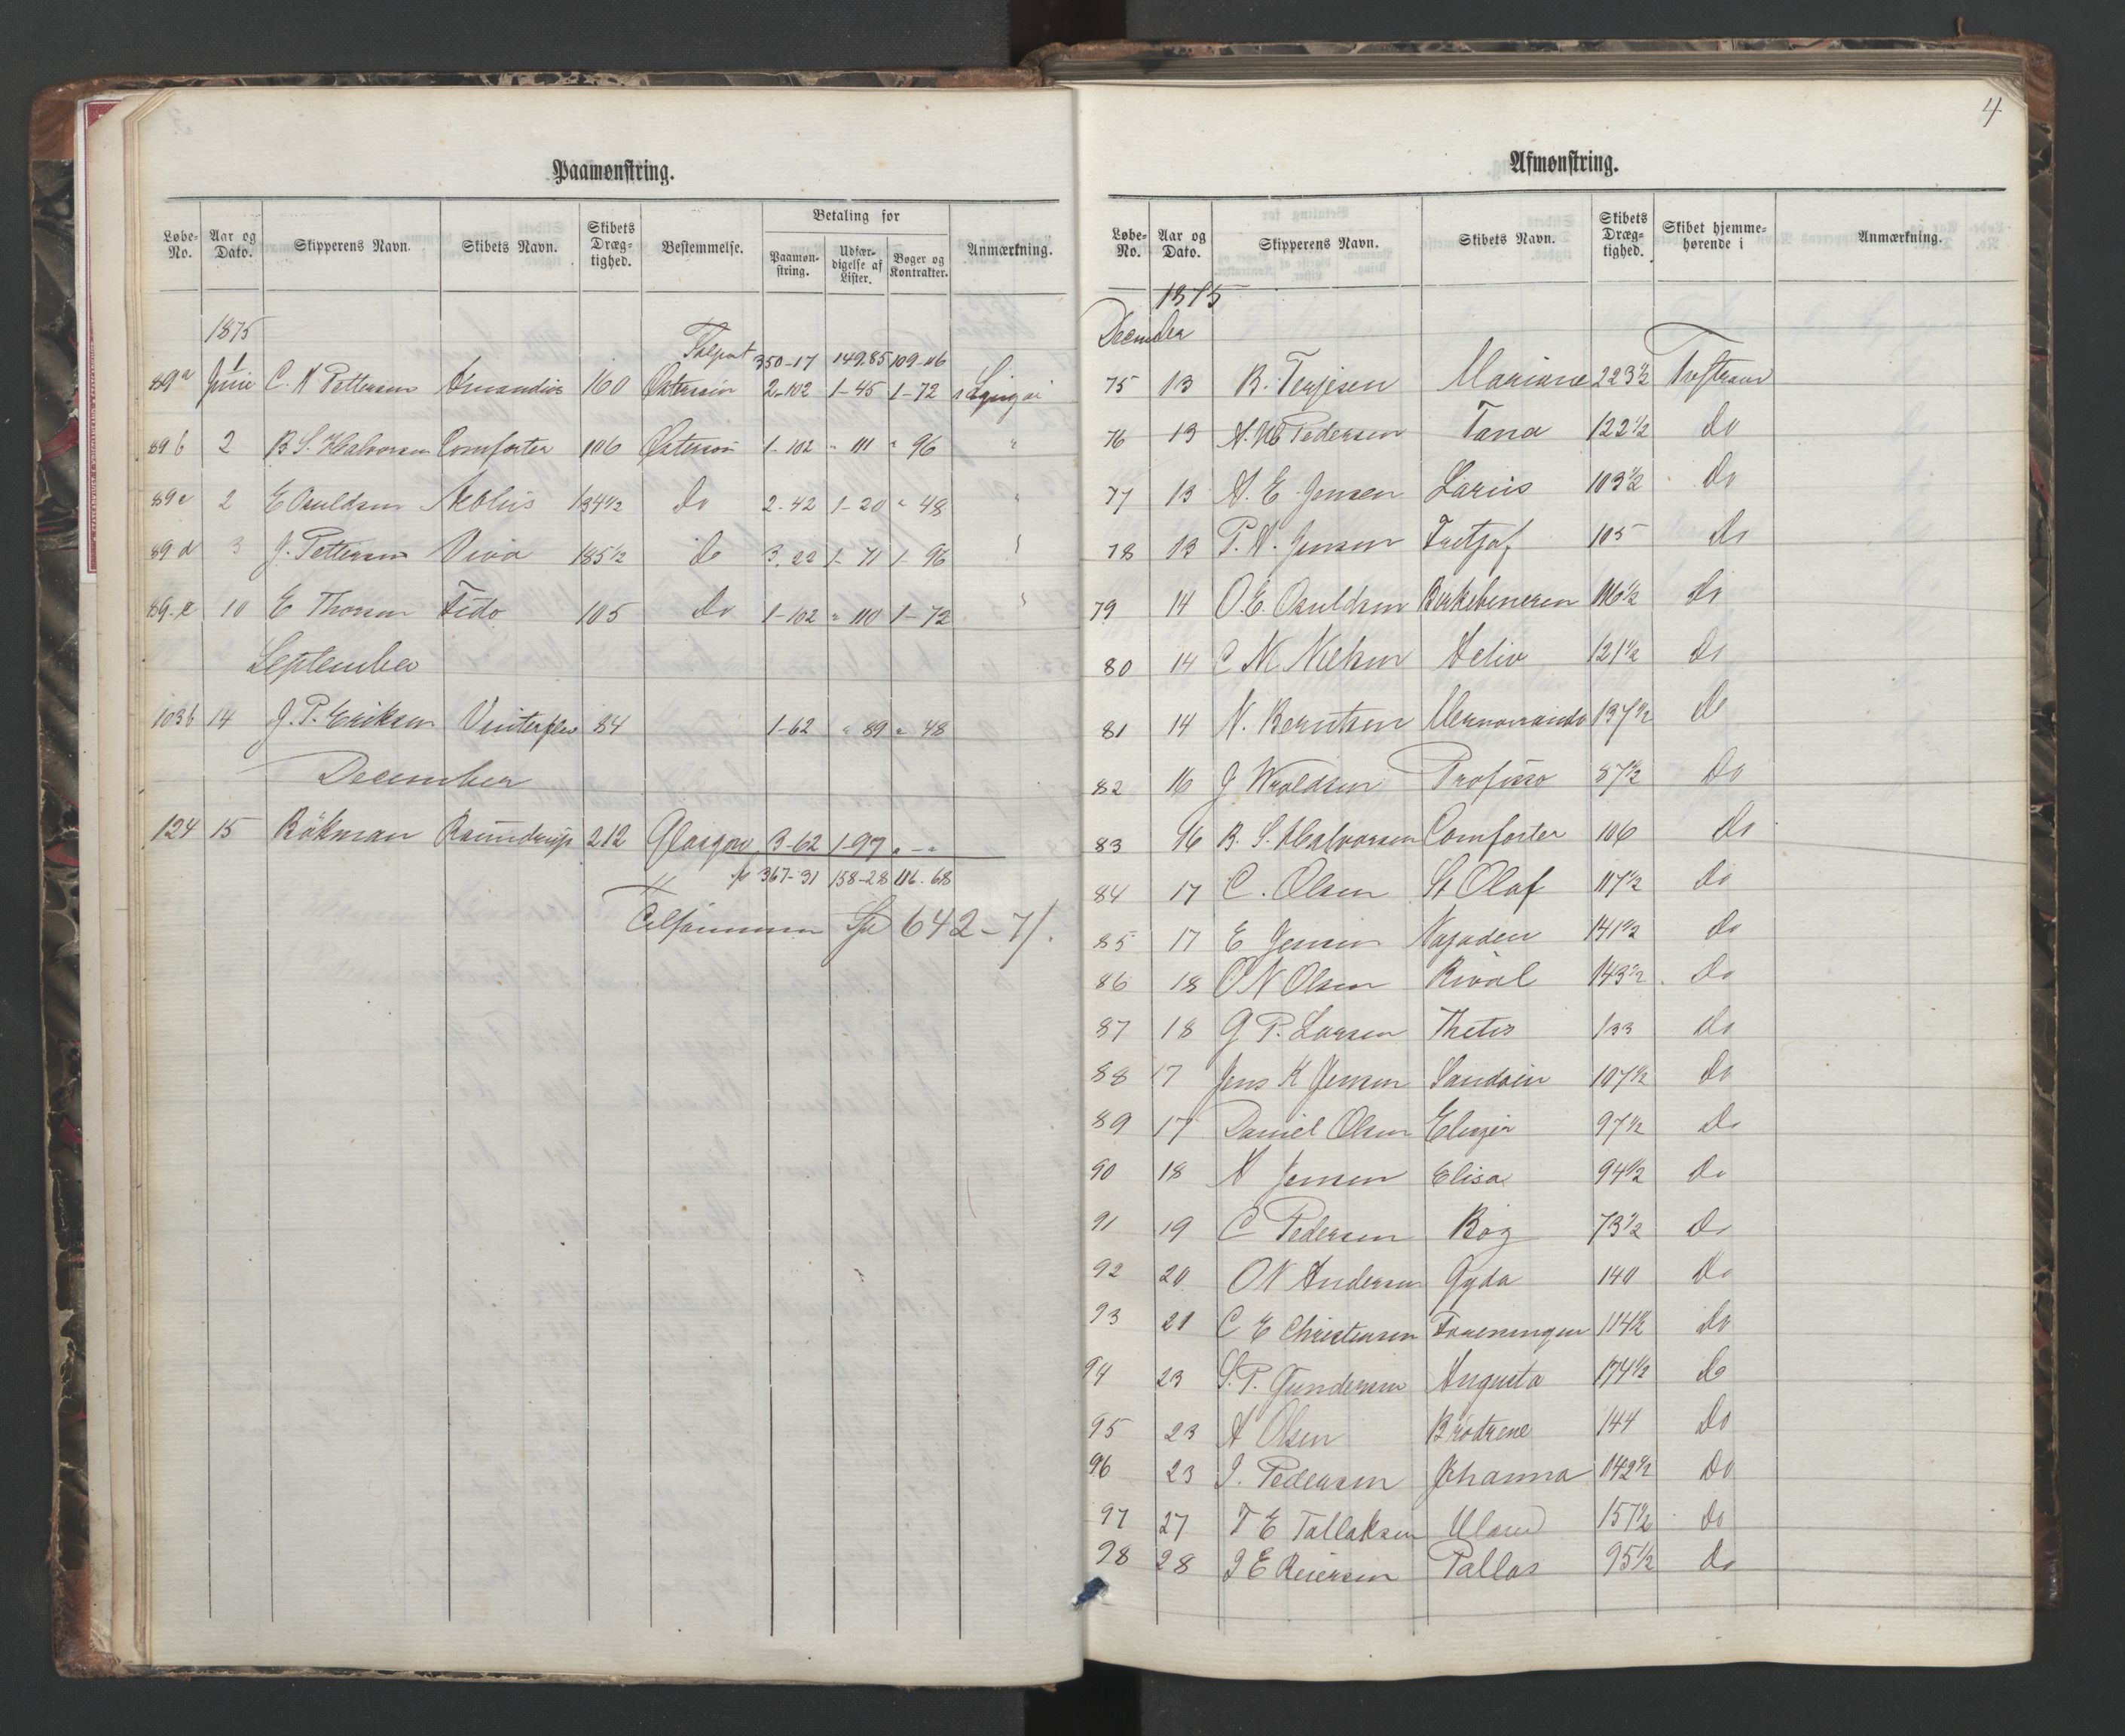 Paamønstring.
Løbe-No. Aar og Dato. Skipperens Navn. Skibets Navn. Skibets Dræg-tighed. Bestemmelse. Betaling for Paamøn-string. Udfær-digelse af Lister. Bøger og Kontrakter. Anmærkning.
1875
350-17 149.85 109-06
89a 1 Juni C. N Pettersen 160 Østersøen 2-102 1-45 1-72
89 b 2 B S. Halvorsen Comforter 106 Østersøen 1-102 " 111 " 96 "
89c 2 E Osuldsen Aeolus 134 1/2 Do 2-42 1-20 " 48 "
89 d 3 J. Pettersen Viva 185 1/2 do 3.22 1-71 1-96
89-e 10 E Thorsen Fido 105 Do 1-102 " 110 1-72
September
103 b 14 J. P. Eriksen 84 1-62 " 89 " 48
December
124 15 Bökman 212 Glasgow 3-62 1-97 " - "
367-31 158-28 116.68
Tilsammen Sp 642-71.
4
Afmønstring.
Løbe-No. Aar og Dato. Skipperens Navn. Skibets Navn. Skibets Dræg-tighed. Skibet hjemme-hørende i Anmærkning.
1875
December
75 13 B. Terjesen Mariane 223 1/2
76 13 Pedersen Tana 122 1/2 do
77 13 A. E. Jensen Larius 103 1/2 do
78 13 P. N. Jensen Fretjof 105 do
79 14 O. E. Osuldsen Birkebeneren 116 1/2 do
80 14 C N. Nielsen Activ 121 1/2 do
81 14 N. Berntsen 137 1/2 do
82 16 J Wroldsen 87 1/2 do
83 16 B. S. Halvorsen Comforter 106 do
84 17 C. Olsen St Olaf 117 1/2 do
85 17 E Jensen Najaden 141 1/2 do
86 18 O N Olsen Rival 143 1/2 do
87 18 G P. Larsen Thetis 133 do
88 17 Jens K Jensen 107 1/2 do
89 17 Daniel Olsen 97 1/2 do
90 18 N Jensen Elisa 94 1/2 do
91 19 C Pedersen 73 1/2 do
92 20 O N Andersen Gyda 140 do
93 21 C E Christensen Foreningen 114 1/2 do
94 23 S. P. Gundersen Augusta 174 1/2 do
95 23 A Olsen Brödrene 144 do
96 23 J. Pedersen Johanna 142 1/2 do
97 27 T E Tallaksen 157 1/2 do
98 28 J E Reiersen Pallas 95 1/2 do